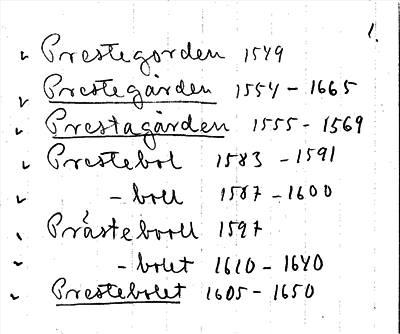 1.
✓ Prestegorden 1549
✓ Prestegården 1554 - 1665
✓ Prestagården 1555 - 1569
✓ Prestebol 1583 - 1591
✓ - boll 1587 - 1600
✓ Prästebooll 1597
✓ - bolet 1610 - 1640
✓ Prestebolet 1605 - 1650